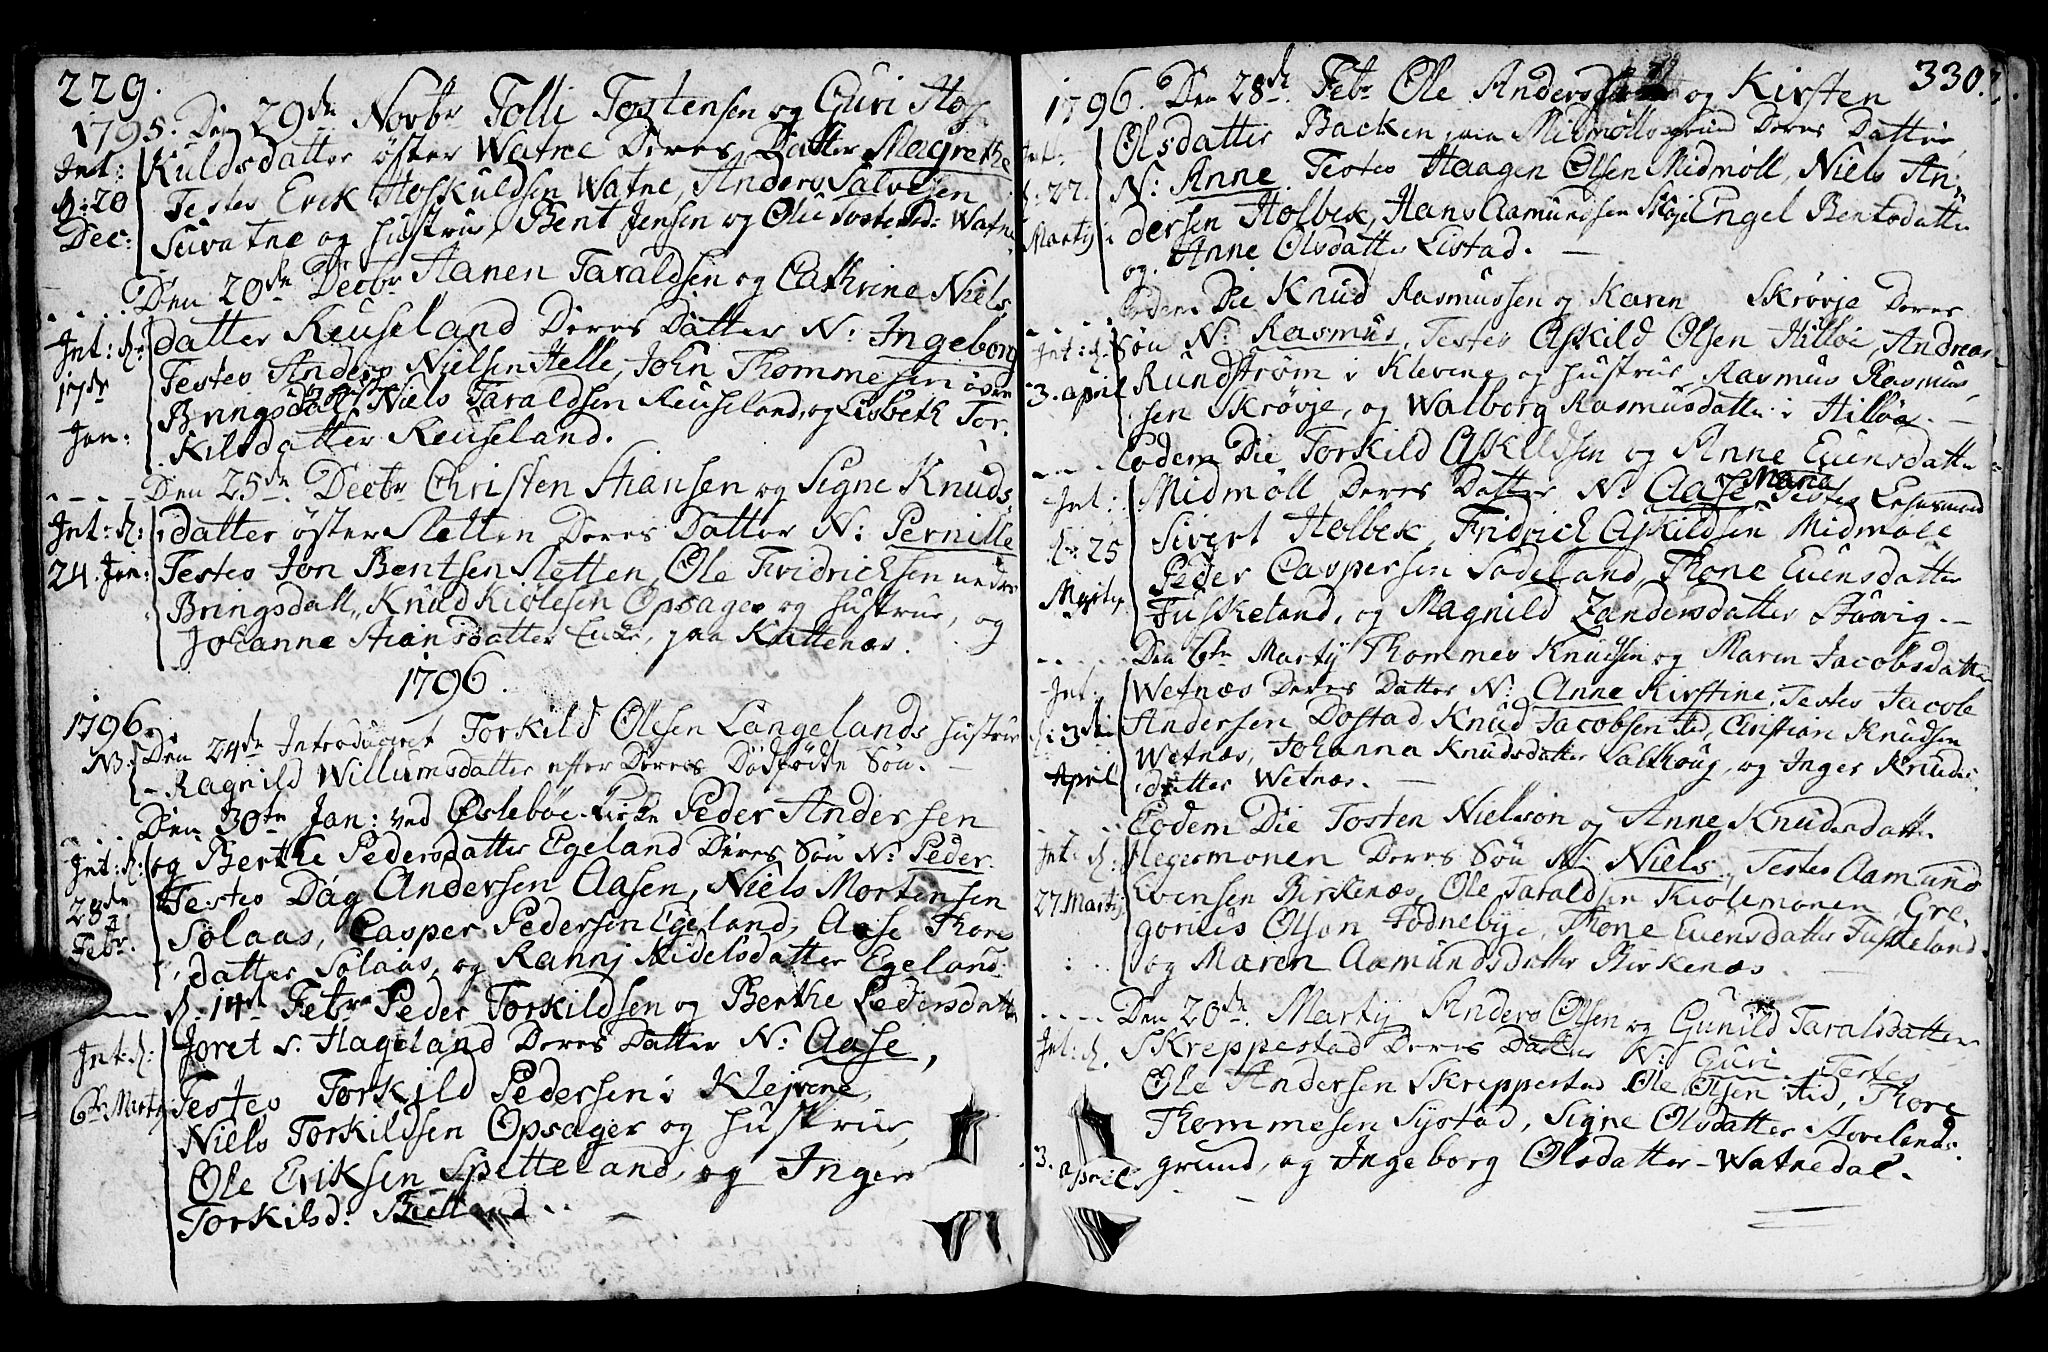 229.
1795. Den 29de Novbr Tolli Tostensen og Guri Hos
Int: Kuldsdatter öster Watne Deres Datter Magrethe
d: 20 Testes Erik Hoskuldsen Watne, Anders Salvesen
Dec: Suvatne og Hustrue, Bent Jensen og Olie Tostensd: Watne
Den 20de Decbr Aanen Taraldsen og Cathrine Niels
Int: d: datter Reuseland Deres Datter N: Ingeborg
17de Testes Anders Nielsen Helle, John Thommesen over
Jan: Bringsdall Niels Taraldsen Reuseland, og Lisbeth Tor-
Kilsdatter Reuseland.
Den 25de Decbr Christen Stiansen og Signe Knuds
Int: d: datter öster Sletten Deres Datter N: Pernille
24. Jan: Testes Jon Bentsen Sletten, Ole Fridrichsen neder
Bringsdall, Knud Kiölesen Opsager og Hustrue, og
Johanne Stiansdatter paa Kattenæs.
1796.
1796. Den 24de Introduceret Torkild Olsen Langelands Hustrue
NB: Ragnild Willumsdatter efter Deres Dödfödte Sön. —
Den 30te Jan: ved Øslebøe Kirke Peder Andersen
Int: d: og Berthe Pedersdatter Egeland Deres Sön N: Peder
28de Testes Dag Andersen Aasen, Niels Mortensen
Febr. Solaas, Casper Pedersen Egeland, Aase Thores
datter Solaas, og Ranni Nidelsdatter Egeland
d. 14de Febr. Peder Torkildsen og Berthe Pedersdatter
Int: d: Joret s. Hageland Deres Datter N: Aase,
6te Marty Testes Torkild Pedersen i Klejvene,
Niels Torkildsen Opsager og Hustrue,
Ole Eriksen Spetteland, og Inger
Torkilsd:
330.
1796. Den 28de Febr Ole Anders og Kirsten
Int: Olsdatter Backen paa Midmölls grund Deres Datter
d: 27. N: Anne. Testes Haagen Olsen Midmöll, Niels An-
Marty dersen Holbek, Hans Aamundsen Engel Bentsdatter
og Anne Olsdatter Eistad. —
Eodem Die Knud Rasmussen og Karen Skrövje Deres
Int: d. Sön N: Rasmus, Testes Askild Olsen Hilløe, Andreas
3. april Rundström i Klevene og Hustrue, Rasmus Rasmus-
sen Skrövje, og Walborg Rasmusdatter i Hilløe. —
Eodem Die Torkild Askildsen og Anne Evensdatter
Int: Midmöll Deres Datter N: Aase Maria Testes
d: 25 Sivert Holbek, Fridrich Askildsen Midmöll
Marty Peder Caspersen Sadeland, Thone Evensdatter
Fuskeland, og Magnild Zandersdatter —
Den 6te Marty Thommes Knudsen og Maren Jacobsdatter
Int: Wetnæs Deres Datter N: Anne Kirstine. Testes Jacob
d: 3die Andersen Dostad, Knud Jacobsen ibid, Christian Knudsen
April Wetnæs, Johanna Knudsdatter og Inger Knuds
datter Wetnæs. —
Eodem Die Tosten Nielsøn og Anne Knudsdatter
Int: d. Hegermonen Deres Sön N: Niels. Testes Aamund
27 Marty Evensen Birkenæs, Ole Taraldsen Kiölemonen, Gre-
gorius Olson Todnebye, Thone Evensdatter Fuskeland
og Maren Aamundsdatter Birkenæs.
Den 20de Marty Anders Olsen og Gunild Taralsdatter
Int: d. Skreppestad Deres Datter N: Guri. Testes
Ole Andersen Skreppestad Ole Olsen ibid, Thore
Thommesen Systad, Signe Olsdatter Stovelands
3. april grund, og Ingeborg Olsdatter Watnedal.